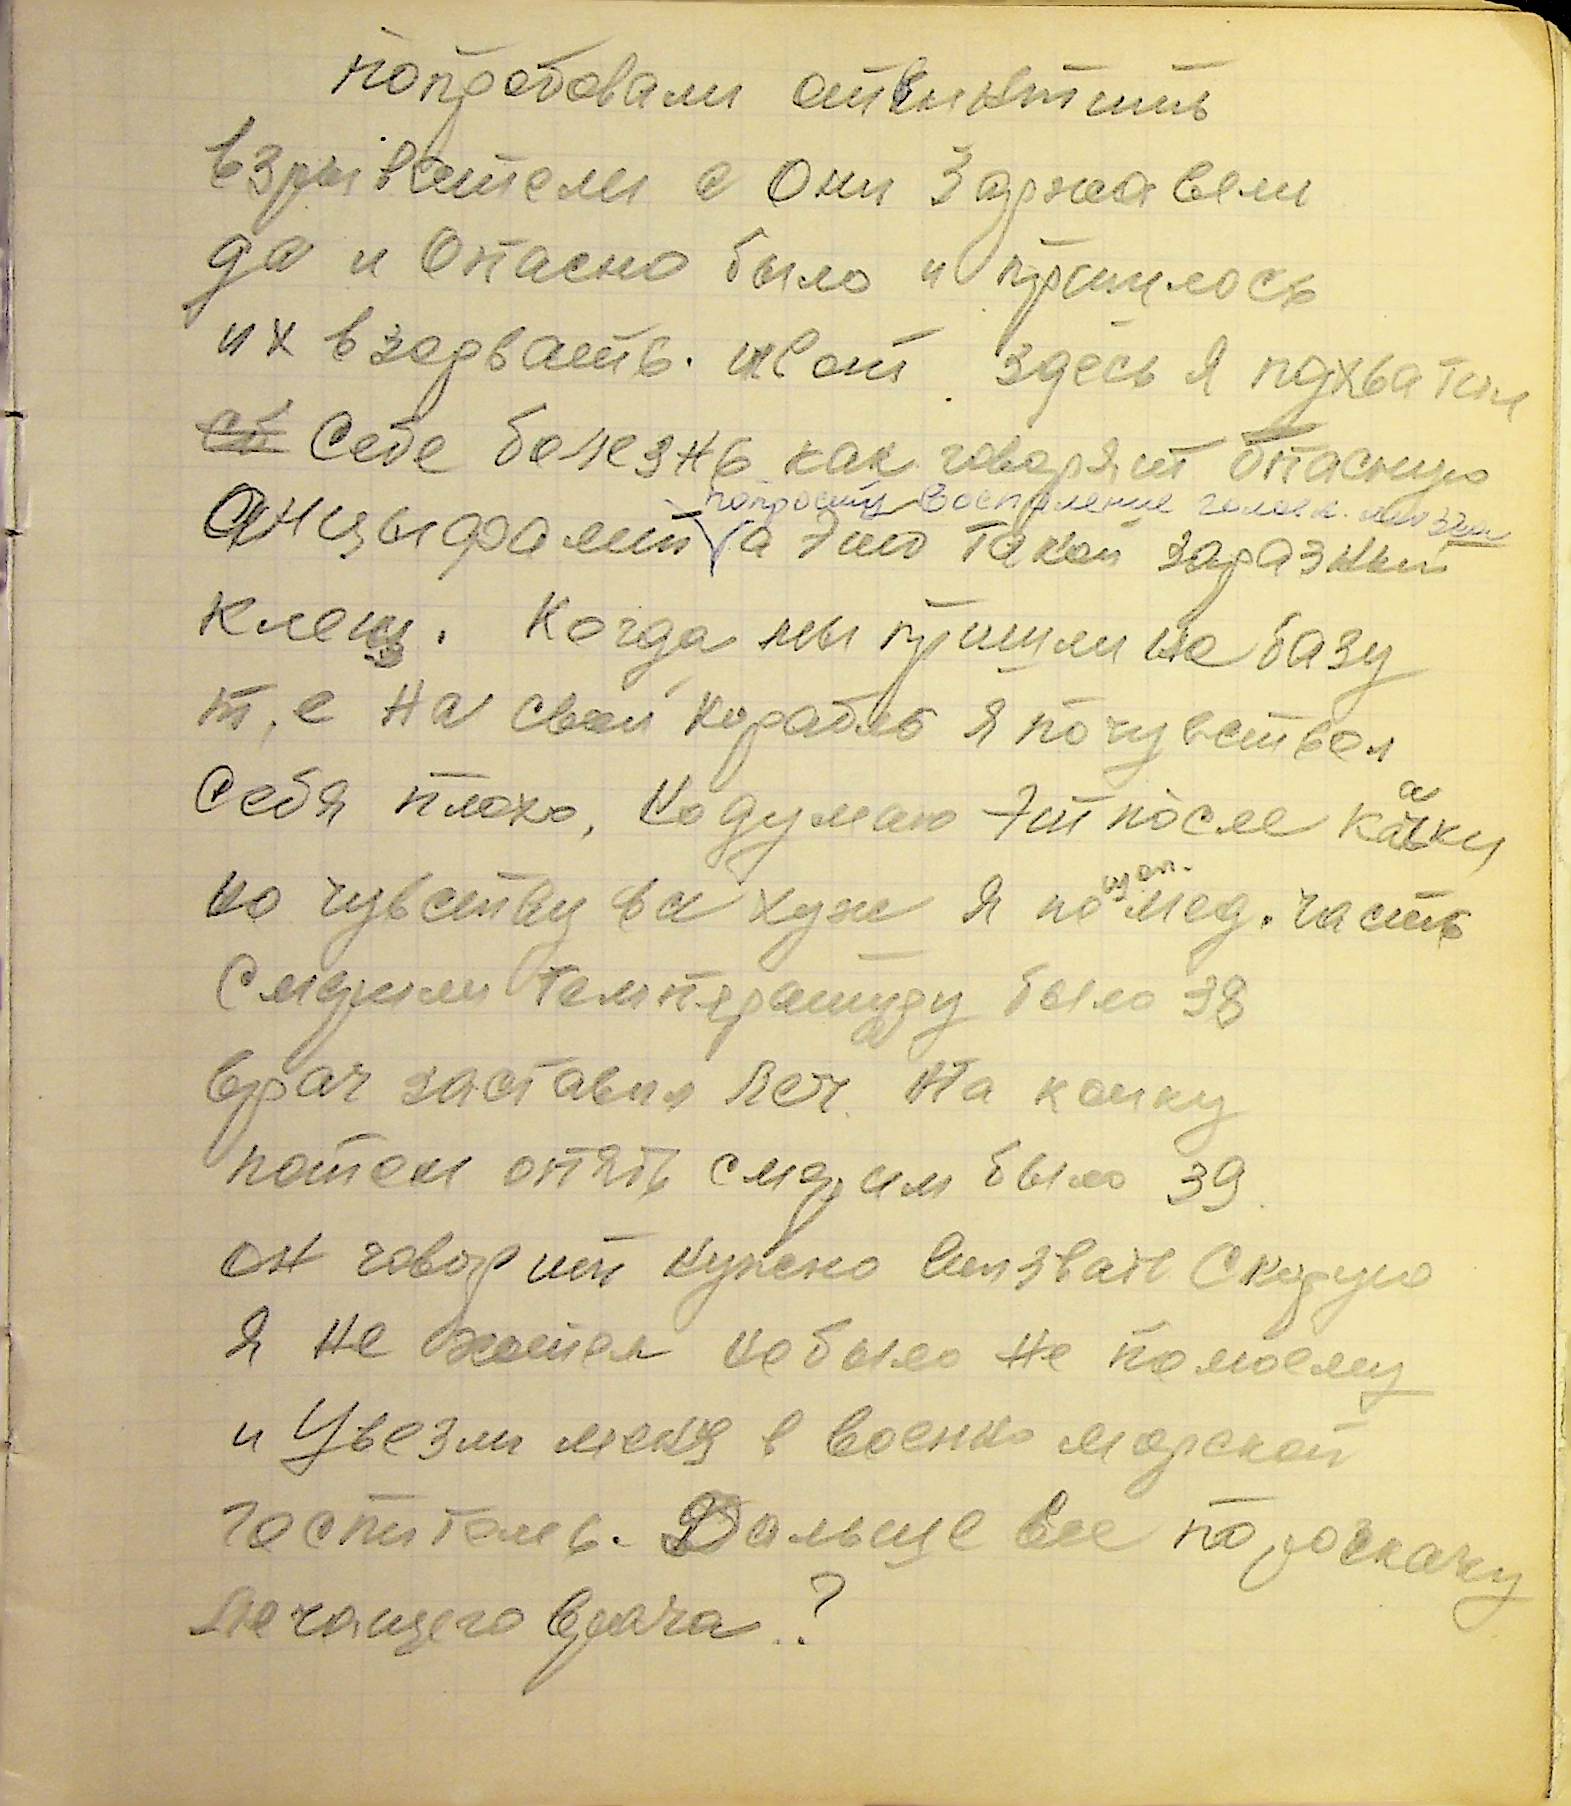 попробовали отвинтить
взрыватели а они заржавели
да и опасно было и пришлось
их взорвать. и вот здесь я подхватил
себе болезнь как говорят опасную
попросту воспаление голов. мозга
Энцыфалит а это такой заразный
клещ. Когда мы пришли на базу
т.е на свой корабль я почувствал
себя плохо, но думаю эт после качки
но чувству ва хуже я пошол мед. часть
Смерили температуру было 38
врач заставил леч на койку
потом опять смерили было 39.
он говорит нужно вызвать Скорую
Я не хотел но было не помоему
и увезли меня в военно морской
госпиталь. Дальше все по роскажу
лечащего врача..?